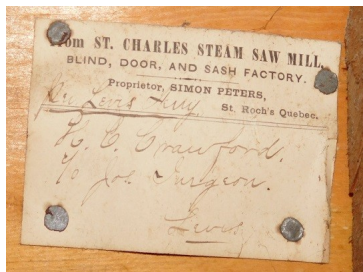 From ST. CHARLES STEAM SAW MILL,
BLIND, DOOR, AND SASH FACTORY.
Proprietor, SIMON PETERS,
St. Roch's Quebec.
Levis
Crawford.
Jos Turgeon.
Levis